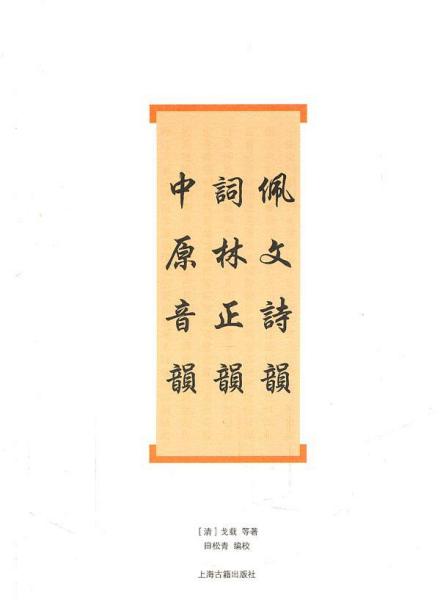 佩文詩韻
詞林正韻
中原音韻
[清] 戈载 等著
田松青 编校
上海古籍出版社